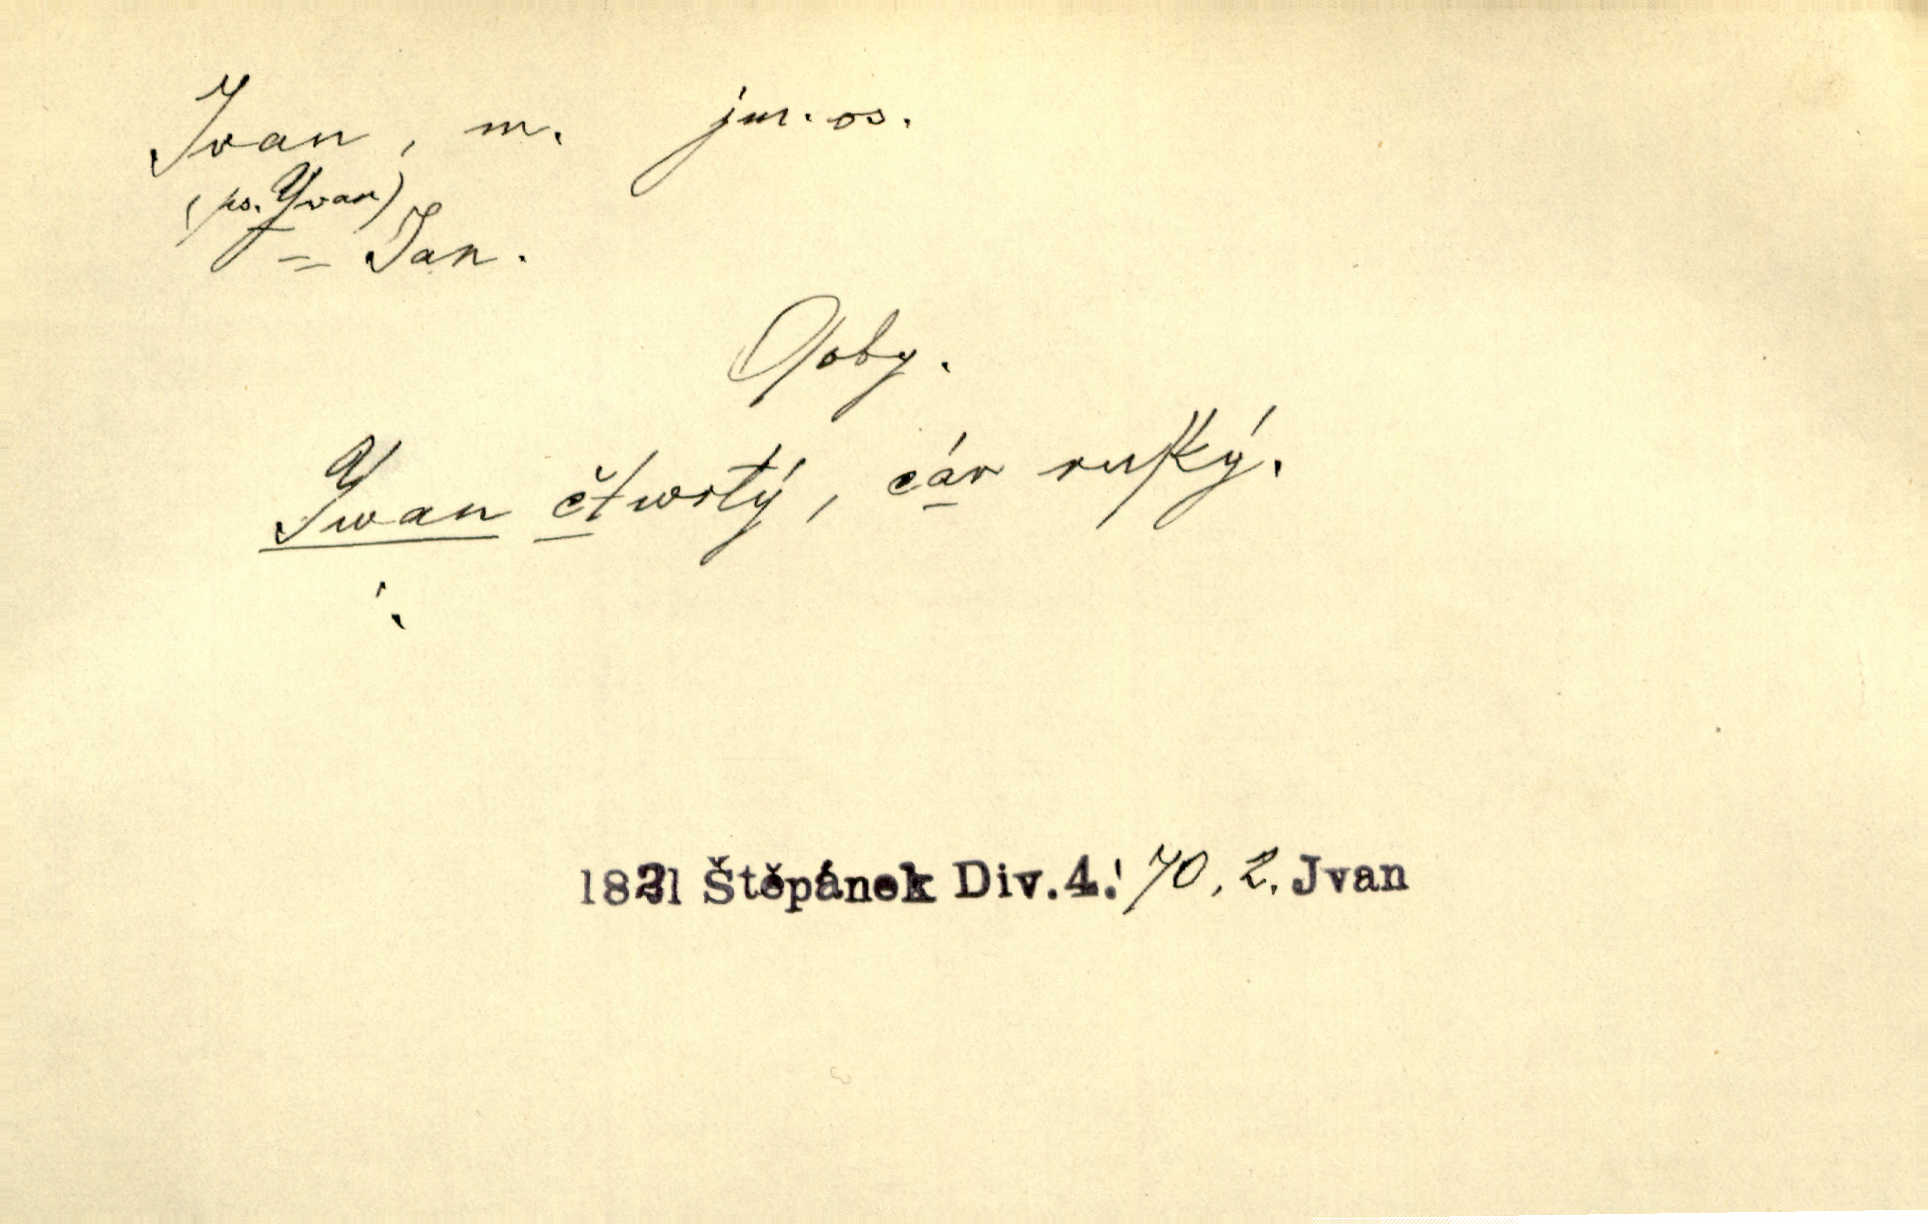 Ivan, m. jm. os.
(ps. Yvan)
= Jan.
Osby.
Iwan čtwrtý, cár ruſký.
1821 Štěpánek Div.4. 70, 2. Jvan